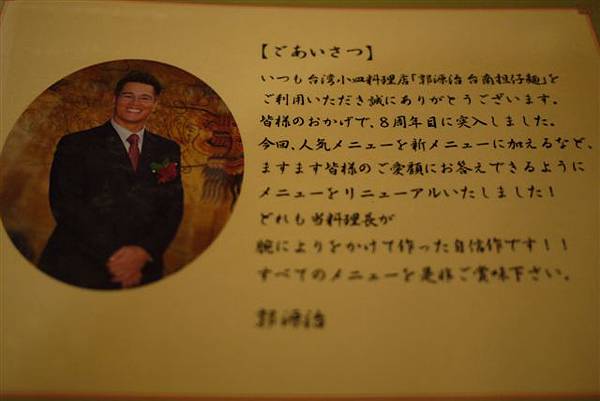 【ごあいさつ】
いつも台湾小皿料理店「郭源治 台南担仔麺」を
ご利用いただき誠にありがとうございます。
皆様のおかげで、8周年目に突入しました。
今回、人気メニューを新メニューに加えるなど、
ますます皆様のご愛顧にお答えできるように
メニューをリニューアルいたしました!
どれも当料理長が
腕によりをかけて作った自信作です!!
すべてのメニューを是非ご賞味下さい。
郭源治